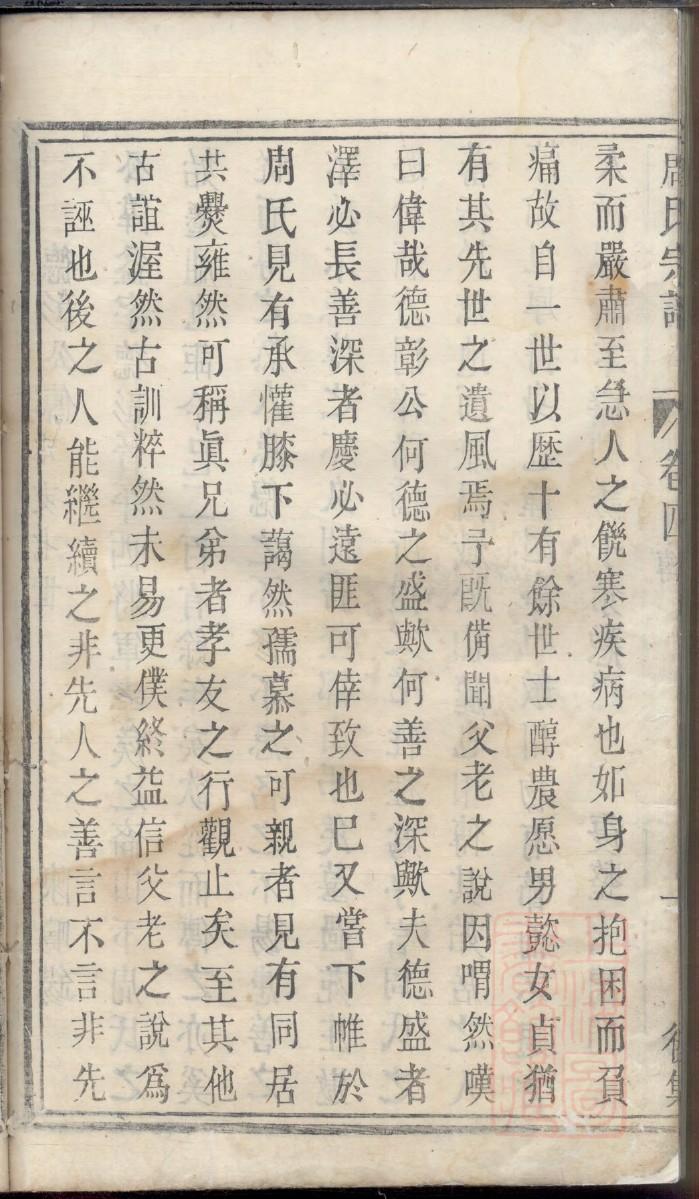 周氏宗譜 卷四
柔而嚴肅至急人之饑寒疾病也如身之抱困而負
痛故自一世以歷十有餘世士醇農愿男懿女貞猶
有其先世之遺風焉予既備聞父老之說因喟然嘆
曰偉哉德彰公何德之盛歟何善之深歟夫德盛者
澤必長善深者慶必遠匪可倖致也巳又嘗下帷於
周氏見有承懽膝下藹然孺慕之可親者見有同居
共爨雍然可稱眞兄弟者孝友之行觀止矣至其他
古誼渥然古訓粹然未易更僕終益信父老之說爲
不誣也後之人能繼續之非先人之善言不言非先